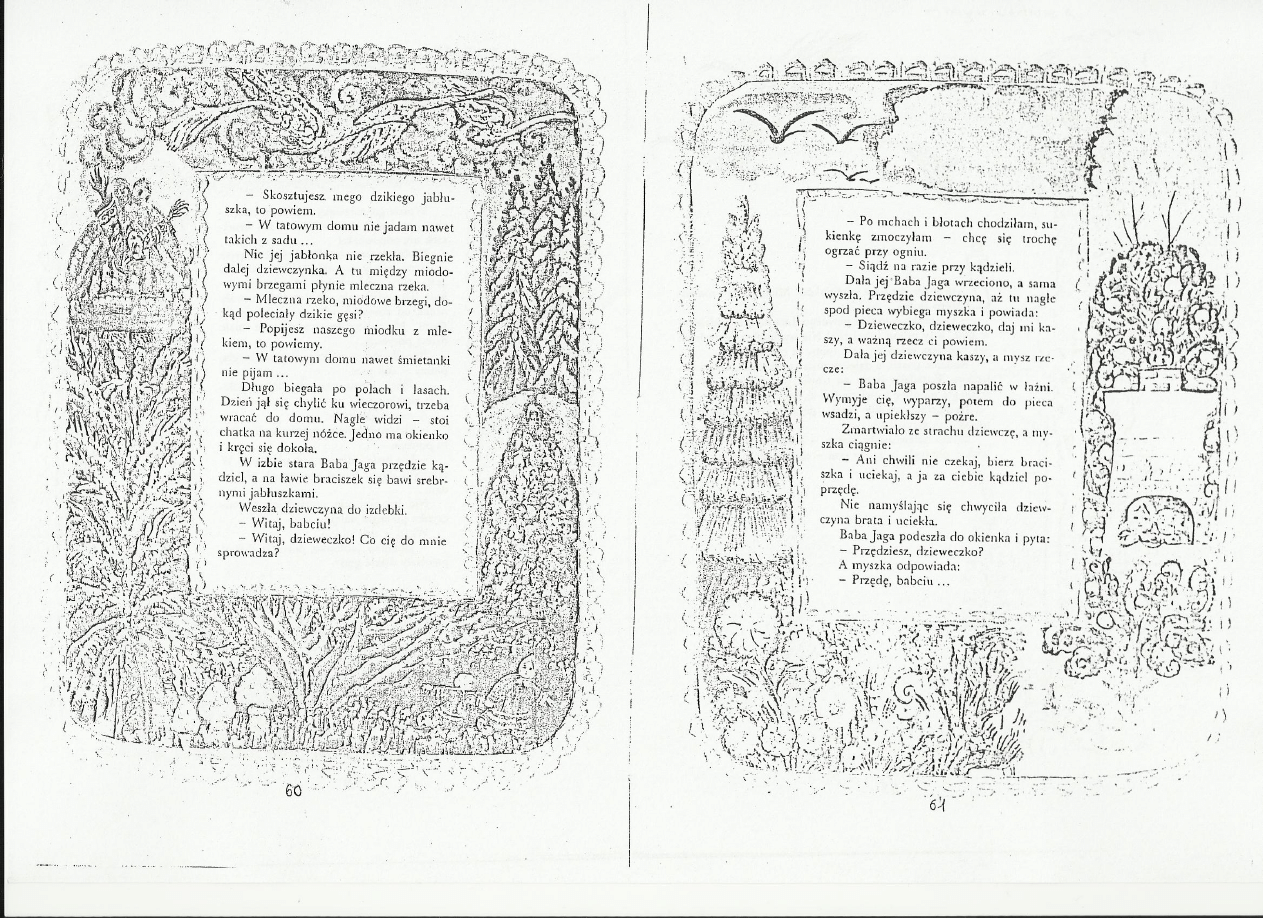 – Skosztujesz mego dzikiego jabłu-
szka, to powiem.
– W tatowym domu nie jadam nawet
takich z sadu ...
Nic jej jabłonka nie rzekła. Biegnie
dalej dziewczynka. A tu między miodo-
wymi brzegami płynie mleczna rzeka.
– Mleczna rzeko, miodowe brzegi, do-
kąd poleciały dzikie gęsi?
– Popijesz naszego miodku z mle-
kiem, to powiemy.
– W tatowym domu nawet śmietanki
nie pijam ...
Długo biegała po polach i lasach.
Dzień jął się chylić ku wieczorowi, trzeba
wracać do domu. Nagle widzi – stoi
chatka na kurzej nóżce. Jedno ma okienko
i kręci się dokoła.
W izbie stara Baba Jaga przędzie ką-
dziel, a na ławie braciszek się bawi srebr-
nymi jabłuszkami.
Weszła dziewczyna do izdebki.
– Witaj, babciu!
– Witaj, dzieweczko! Co cię do mnie
sprowadza?
60
– Po mchach i błotach chodziłam, su-
kienkę zmoczyłam – chcę się trochę
ogrzać przy ogniu.
– Siądź na razie przy kądzieli.
Dała jej Baba Jaga wrzeciono, a sama
wyszła. Przędzie dziewczyna, aż tu nagle
spod pieca wybiega myszka i powiada:
– Dzieweczko, dzieweczko, daj mi ka-
szy, a ważną rzecz ci powiem.
Dała jej dziewczyna kaszy, a mysz rze-
cze:
– Baba Jaga poszła napalić w łaźni.
Wymyje cię, wyparzy, potem do pieca
wsadzi, a upiekłszy – pożre.
Zmartwiało ze strachu dziewczę, a my-
szka ciągnie:
– Ani chwili nie czekaj, bierz braci-
szka i uciekaj, a ja za ciebie kądziel po-
przędę.
Nie namyślając się chwyciła dziew-
czyna brata i uciekła.
Baba Jaga podeszła do okienka i pyta:
– Przędziesz, dzieweczko?
A myszka odpowiada:
– Przędę, babciu ...
61